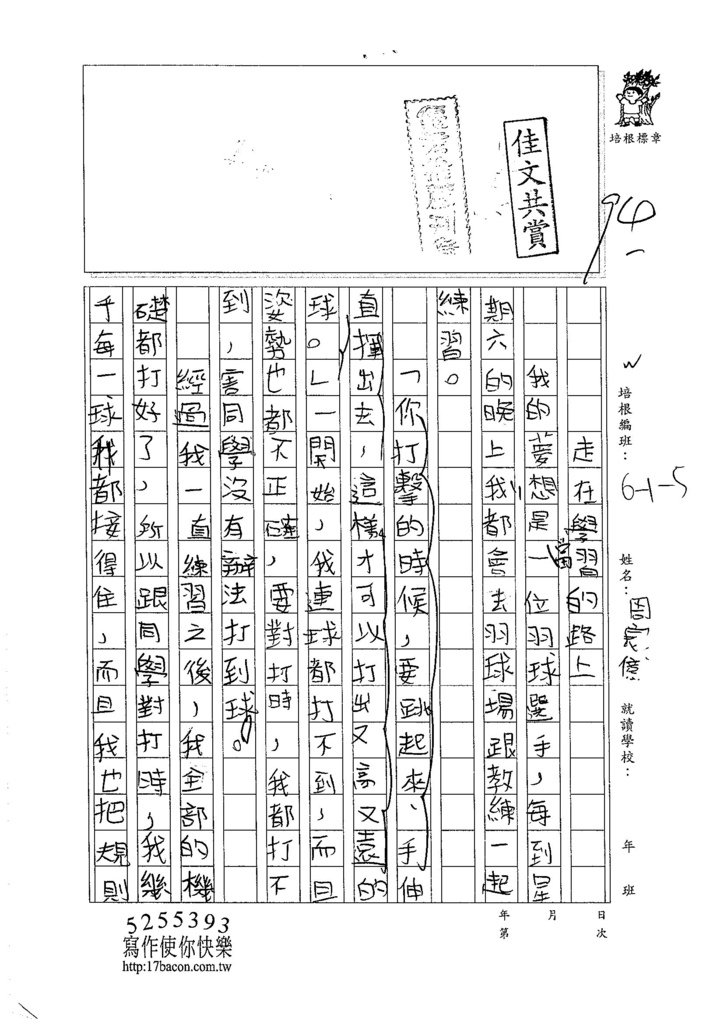 培根標章
94
佳文共賞
培根編班：
6-1-5
姓名：
就讀學校：
年 班
走在學習的路上
我的夢想是當一位羽球選手，每到星
期六的晚上我都會去羽球場跟教練一起
練習。
「你打擊的時候，要跳起來、手伸
直揮出去，這樣才可以打出又高又遠的
球。」一開始，我連球都打不到，而且
姿勢也都不正確，要對打時，我都打不
到，害同學沒有辦法打到球。
經過我一直練習之後，我全部的機
礎都打好了，所以跟同學對打時，我幾
乎每一球我都接得住，而且我也把規則
月 日
年 第 次
5255393
寫作使你快樂
http:17bacon.com.tw